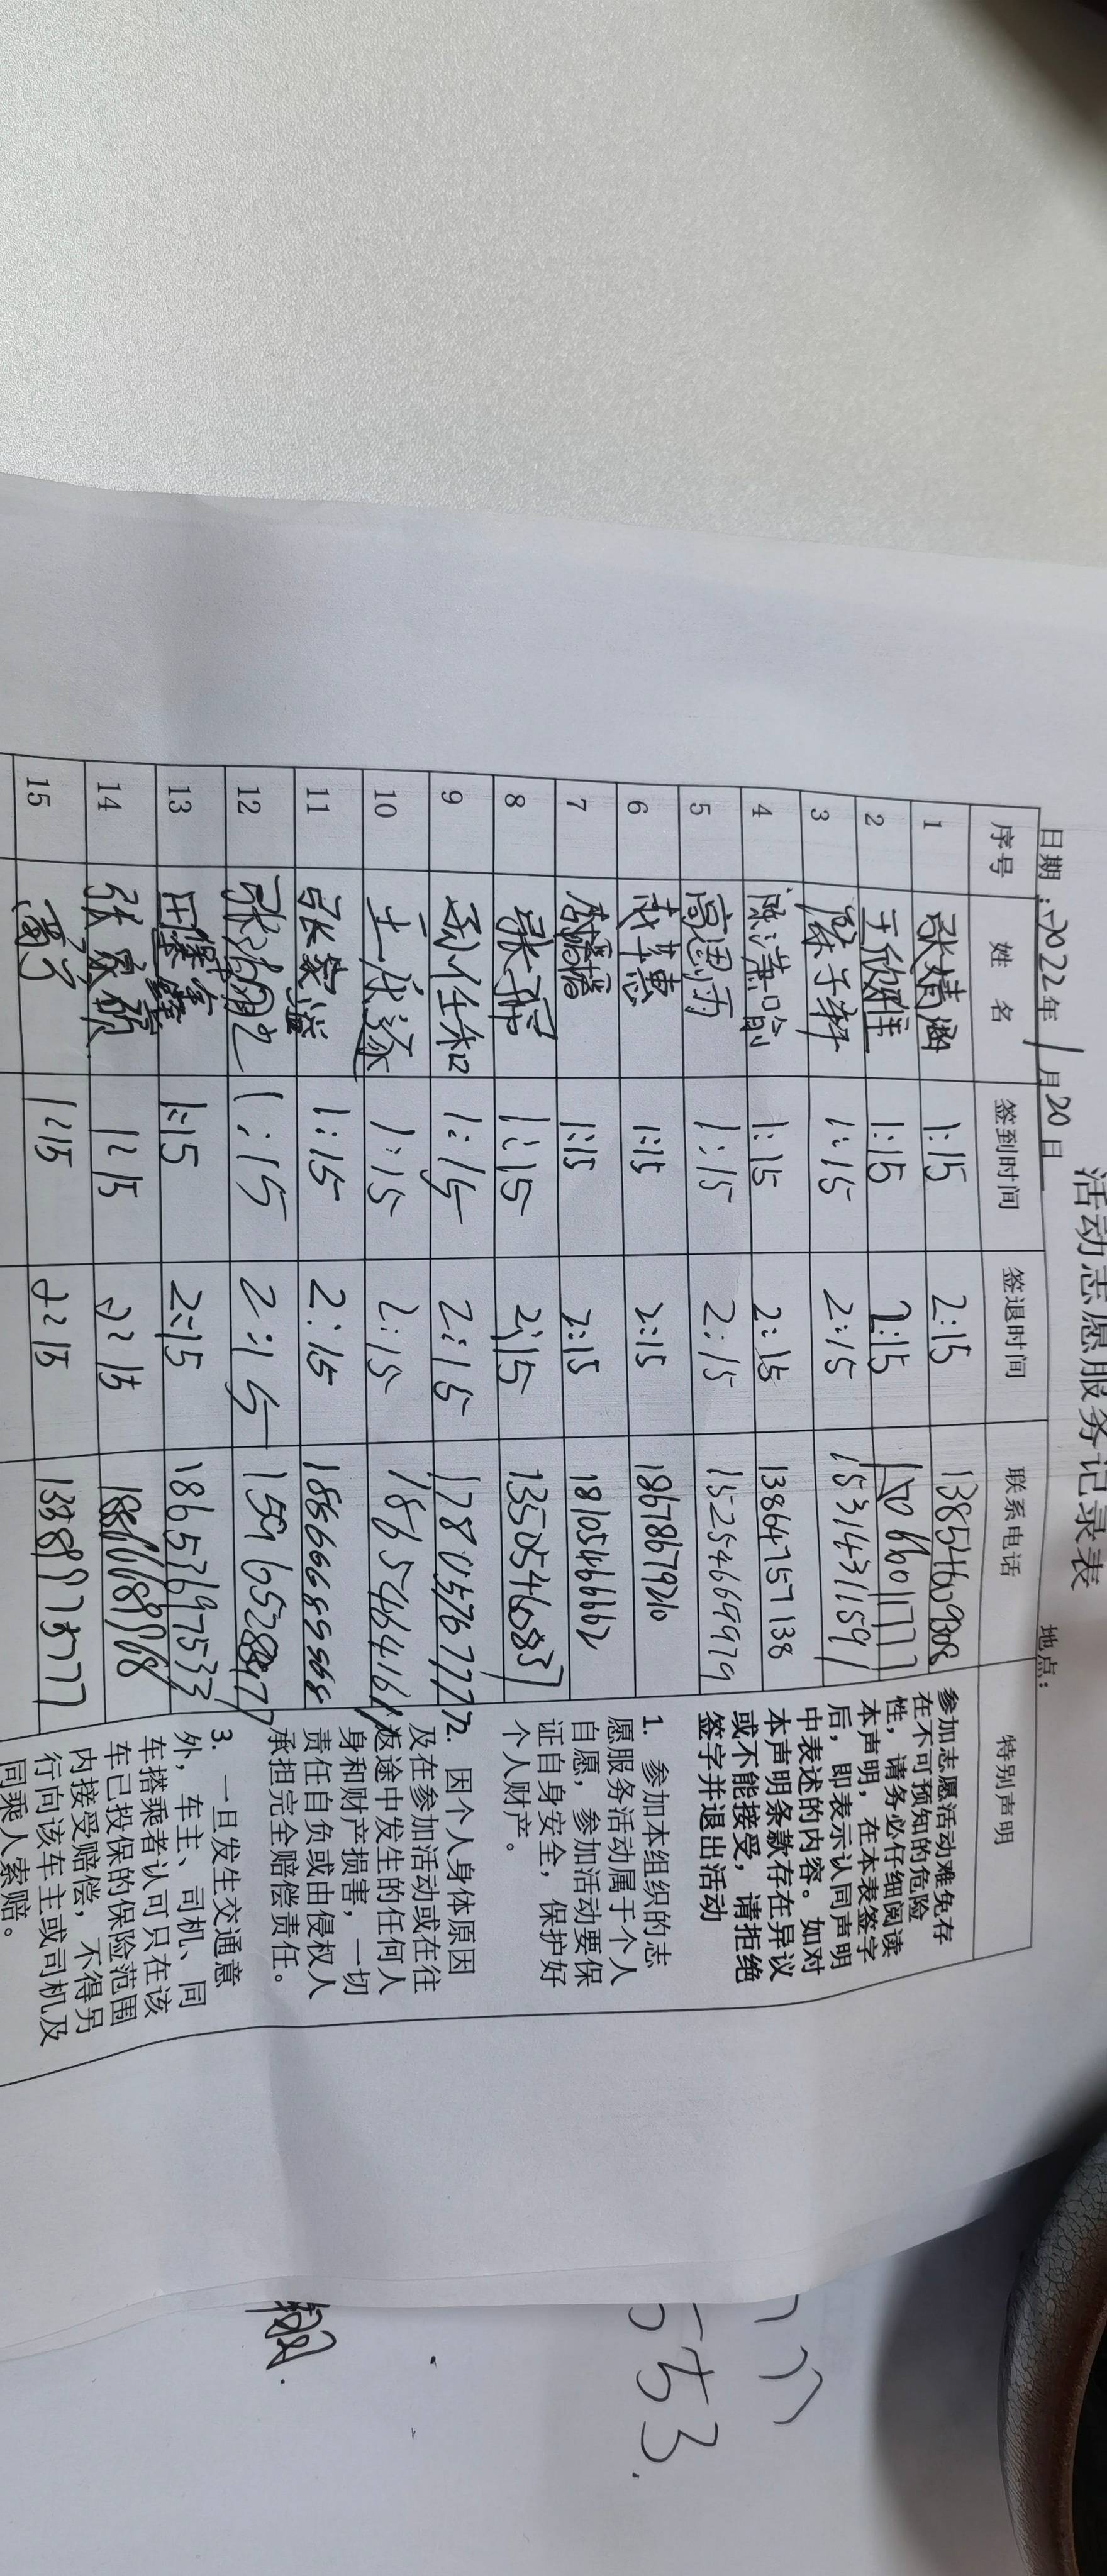 活动志愿服务记录表
日期:2022年 1月20日 地点:
序号 姓 名 签到时间 签退时间 联系电话 特别声明
1 张婧涵 1:15 2:15
2 于欣胜 1:15 2:15
3 子轩 1:15 2:15 15314311591
4 陈沛晗 1:15 2:15 13864757138
5 高恩雨 1:15 2:15 15254669979
6 1:15 2:15 18678679210
7 1:15 2:15 18105466662
8 张 1:15 2:15 13505460837
9 任和 1:15 2:15 17805767772
10 王 1:15 2:15 1865464161
11 张家溢 1:15 2:15 18866689568
12 张 1:15 2:15
13 田 1:15 2:15 18653697533
14 张家硕 1:15 2:15
15 1:15 2:15
参加志愿活动难免存
在不可预知的危险
性,请务必仔细阅读
本声明,在本表签字
后,即表示认同声明
中表述的内容。如对
本声明条款存在异议
或不能接受,请拒绝
签字并退出活动
1. 参加本组织的志
愿服务活动属于个人
自愿,参加活动要保
证自身安全,保护好
个人财产。
2. 因个人身体原因
及在参加活动或在往
返途中发生的任何人
身和财产损害,一切
责任自负或由侵权人
承担完全赔偿责任。
3. 一旦发生交通意
外,车主、司机、同
车搭乘者认可只在该
车已投保的保险范围
内接受赔偿,不得另
行向该车主或司机及
同乘人索赔。
53.